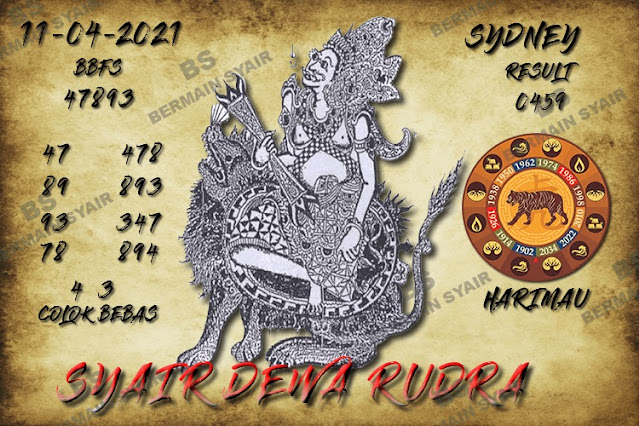 11-04-2021
BBFS
47893
47 478
89 893
93 347
78 894
4 3
COLOK BEBAS
SYDNEY
RESULT
0459
1962 1974 1986 1998 2010 2022 2034 1902 1914 1926 1938 1950
HARIMAU
SYAIR DEWA RUDRA
BS
BERMAIN SYAIR
BS
BERMAIN SYAIR
BERMAIN SYAIR
BERMAIN SYAIR
BERMAIN SYAIR